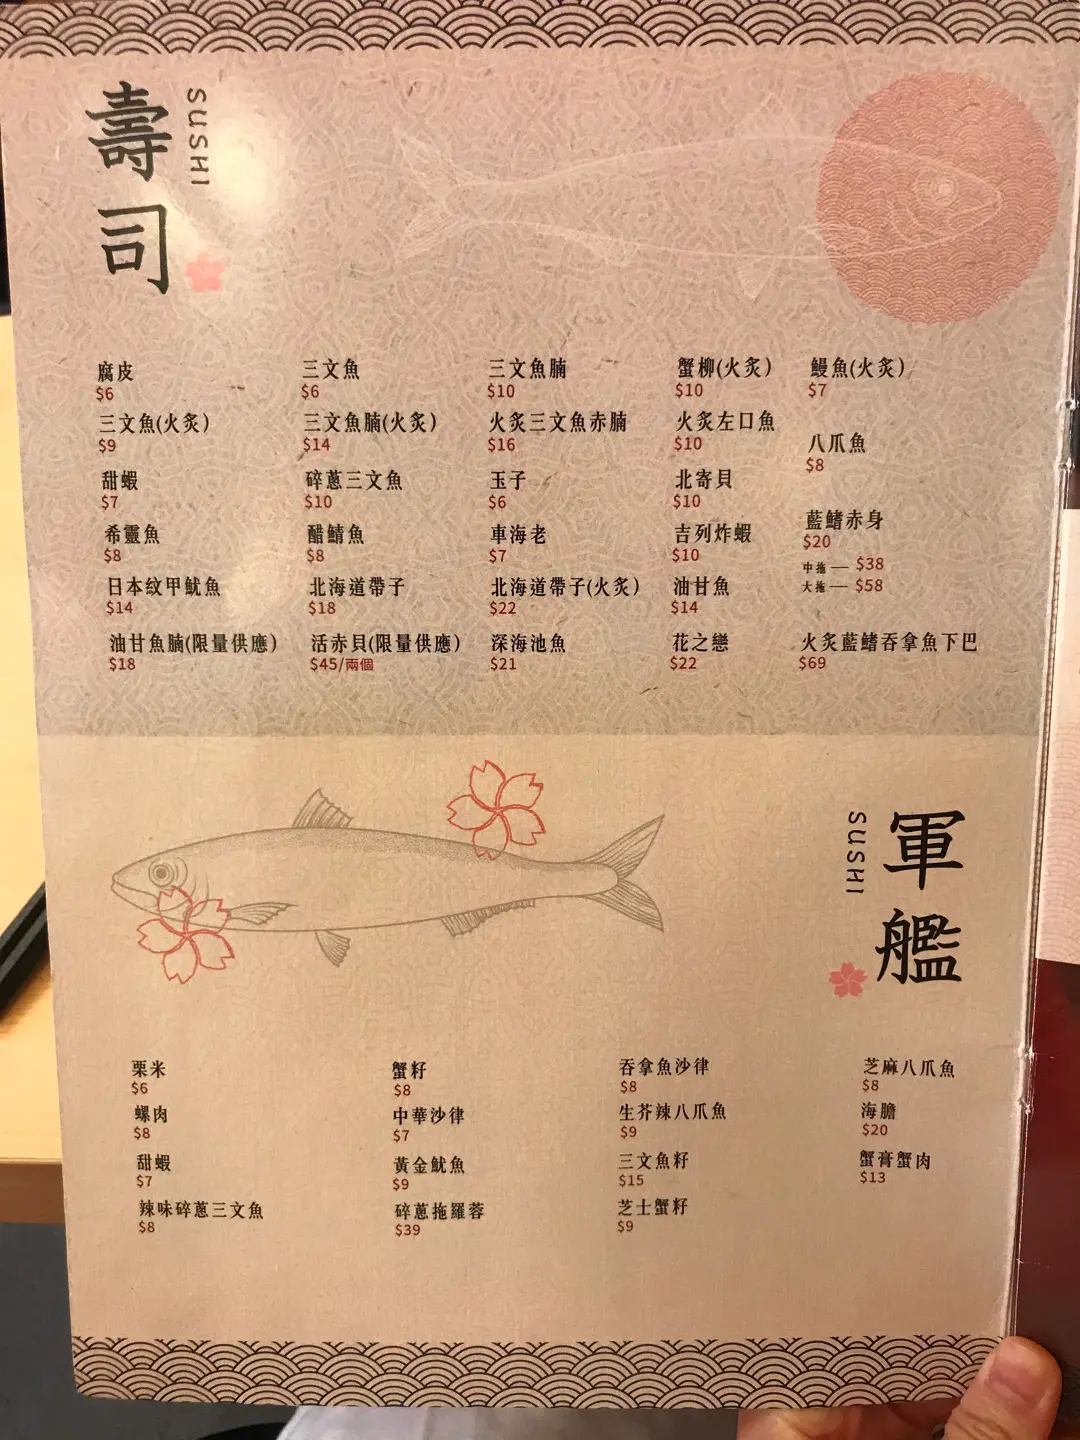 壽司
SUSHI
腐皮
$6
三文魚
$6
三文魚腩
$10
蟹柳(火炙)
$10
鰻魚(火炙)
$7
三文魚(火炙)
$9
三文魚腩(火炙)
$14
火炙三文魚赤腩
$16
火炙左口魚
$10
八爪魚
$8
甜蝦
$7
碎蔥三文魚
$10
玉子
$6
北寄貝
$10
藍鰭赤身
$20
中拖 — $38
大拖 — $58
希靈魚
$8
醋鯖魚
$8
車海老
$7
吉列炸蝦
$10
日本紋甲魷魚
$14
北海道帶子
$18
北海道帶子(火炙)
$22
油甘魚
$14
油甘魚腩(限量供應)
$18
活赤貝(限量供應)
$45/兩個
深海池魚
$21
花之戀
$22
火炙藍鰭吞拿魚下巴
$69
軍艦
SUSHI
栗米
$6
蟹籽
$8
吞拿魚沙律
$8
芝麻八爪魚
$8
螺肉
$8
中華沙律
$7
生芥辣八爪魚
$9
海膽
$20
甜蝦
$7
黃金魷魚
$9
三文魚籽
$15
蟹膏蟹肉
$13
辣味碎蔥三文魚
$8
碎蔥拖羅蓉
$39
芝士蟹籽
$9